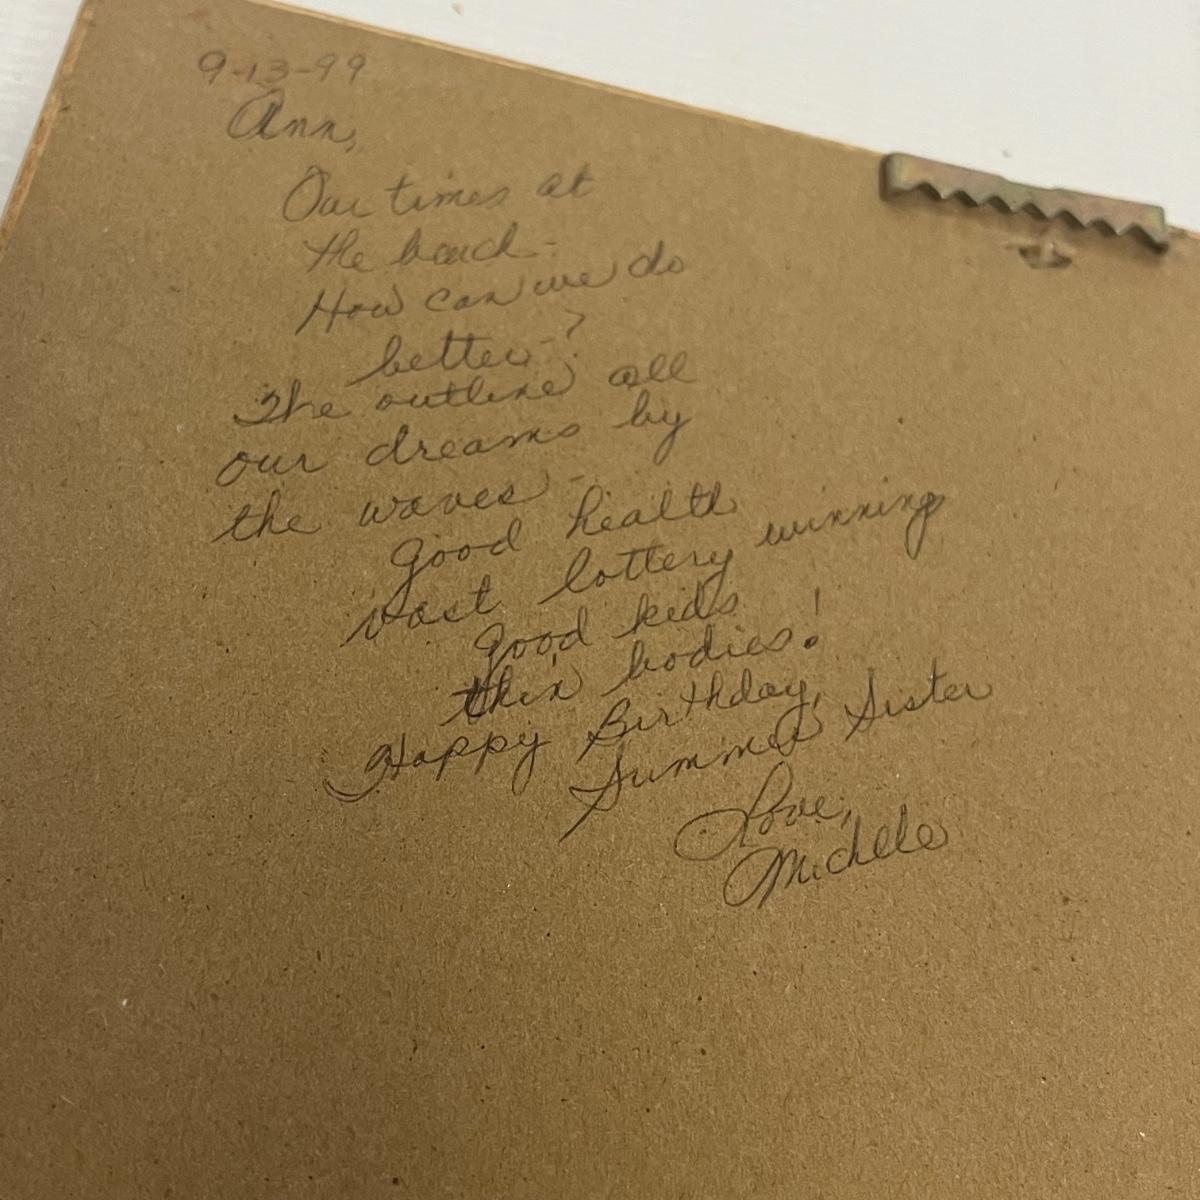 9-13-99
Ann,
Our times at
the beach -
How can we do
better - ?
The outline all
our dreams by
the waves -
good health
vast lottery winning
good kids
thin bodies!
Happy Birthday,
Summer Sister
Love,
Michele